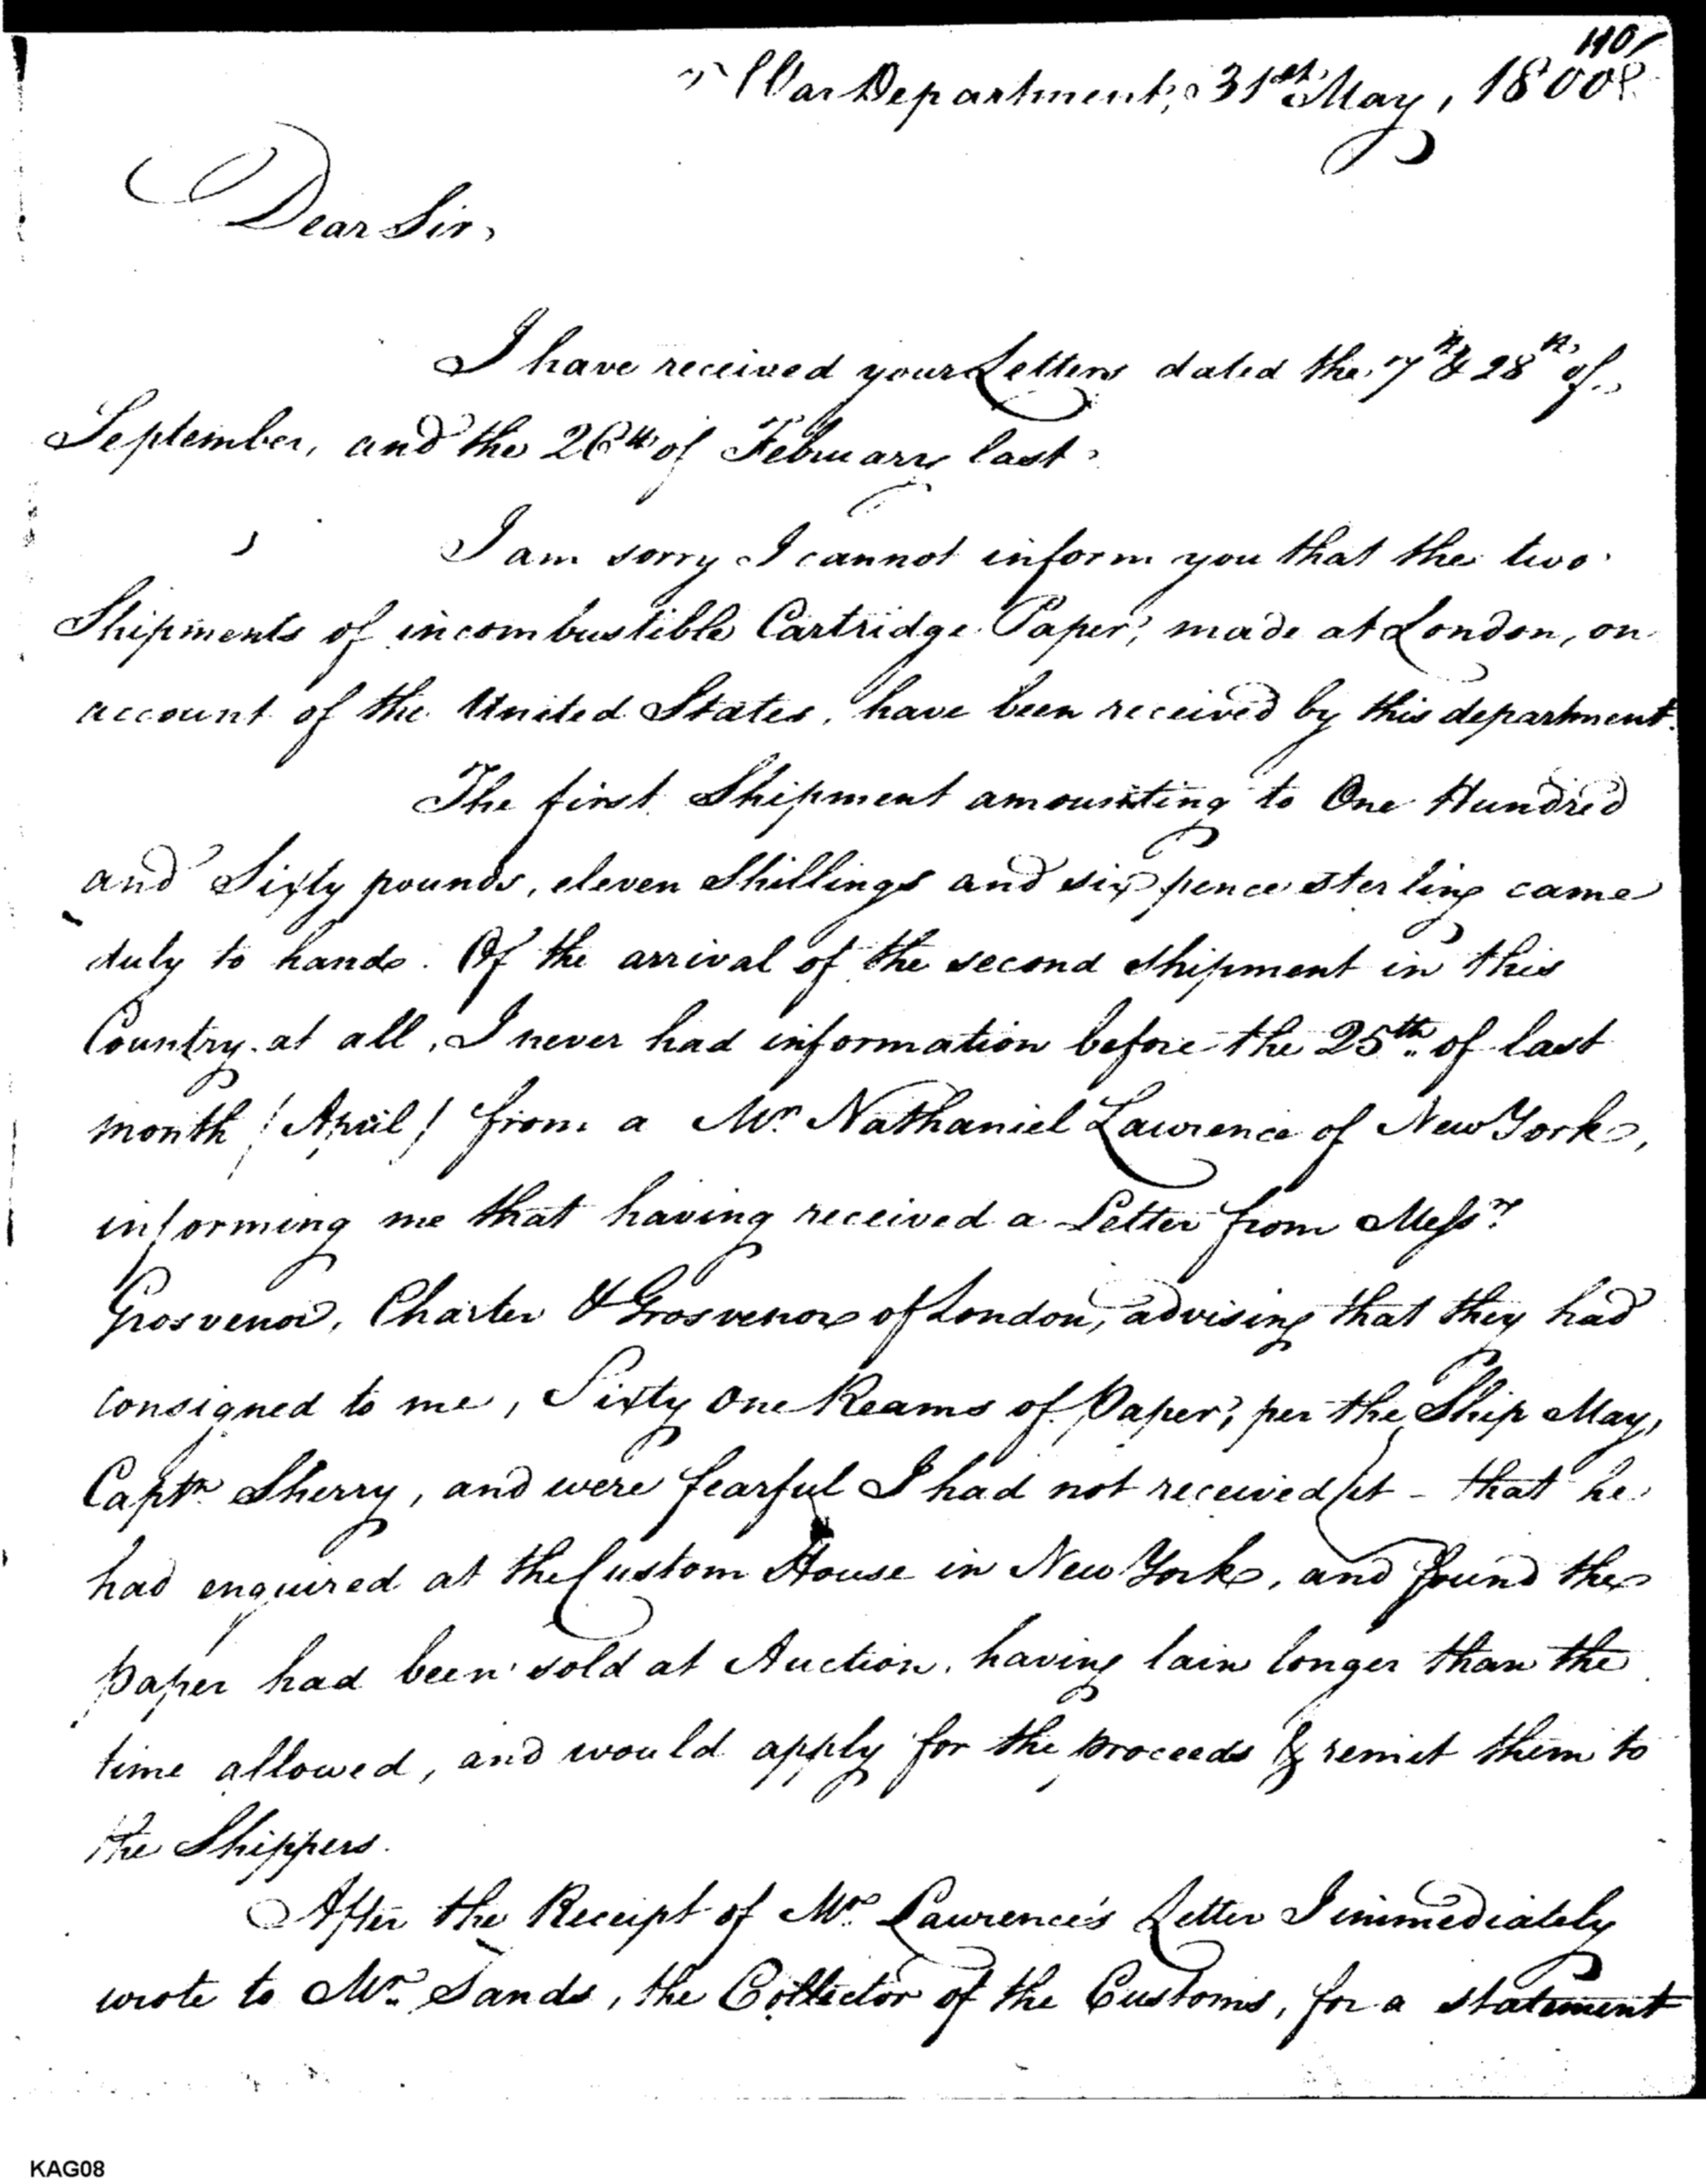 110/
War Department, 31st May, 1800.
Dear Sir,
I have received your Letters dated the 7th & 28th of
September, and the 26th of February last.
I am sorry I cannot inform you that the two
Shipments of incombustible Cartridge Paper, made at London, on
account of the United States, have been received by this department.
The first Shipment amounting to One Hundred
and Sixty pounds, eleven Shillings and six pence sterling came
duly to hand. Of the arrival of the second shipment in this
Country at all, I never had information before the 25th of last
month /April/ from a Mr. Nathaniel Lawrence of New York,
informing me that having received a Letter from Messrs.
Grosvenor, Charter & Grosvenor of London, advising that they had
consigned to me, Sixty one Reams of Paper, per the Ship May,
Captn. Sherry, and were fearful I had not received it - that he
had enquired at the Custom House in New York, and found the
paper had been sold at Auction, having lain longer than the
time allowed, and would apply for the proceeds & remit them to
the Shippers.
After the Receipt of Mr. Lawrence's Letter I immediately
wrote to Mr. Sands, the Collector of the Customs, for a statement
KAG08